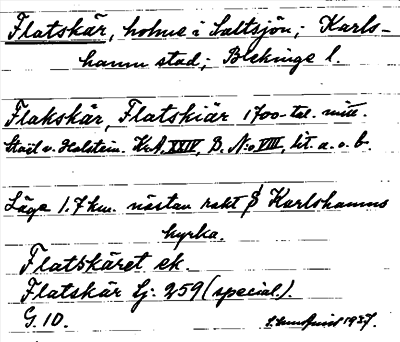 Flatskär, holme i Saltsjön; Karls-
hamn stad; Blekinge l.
Flakskär, Flatskiär 1700-tal. mitt.
Staël v. Holstein. Kr.A. XXIV, B. N:o VIII, lit. a. o. b.
Läge 1.7 km. nästan rakt S Karlshamns
kyrka.
Flatskäret ek.
Flatskär Sj. 259 (special.).
G. 10.
1937.